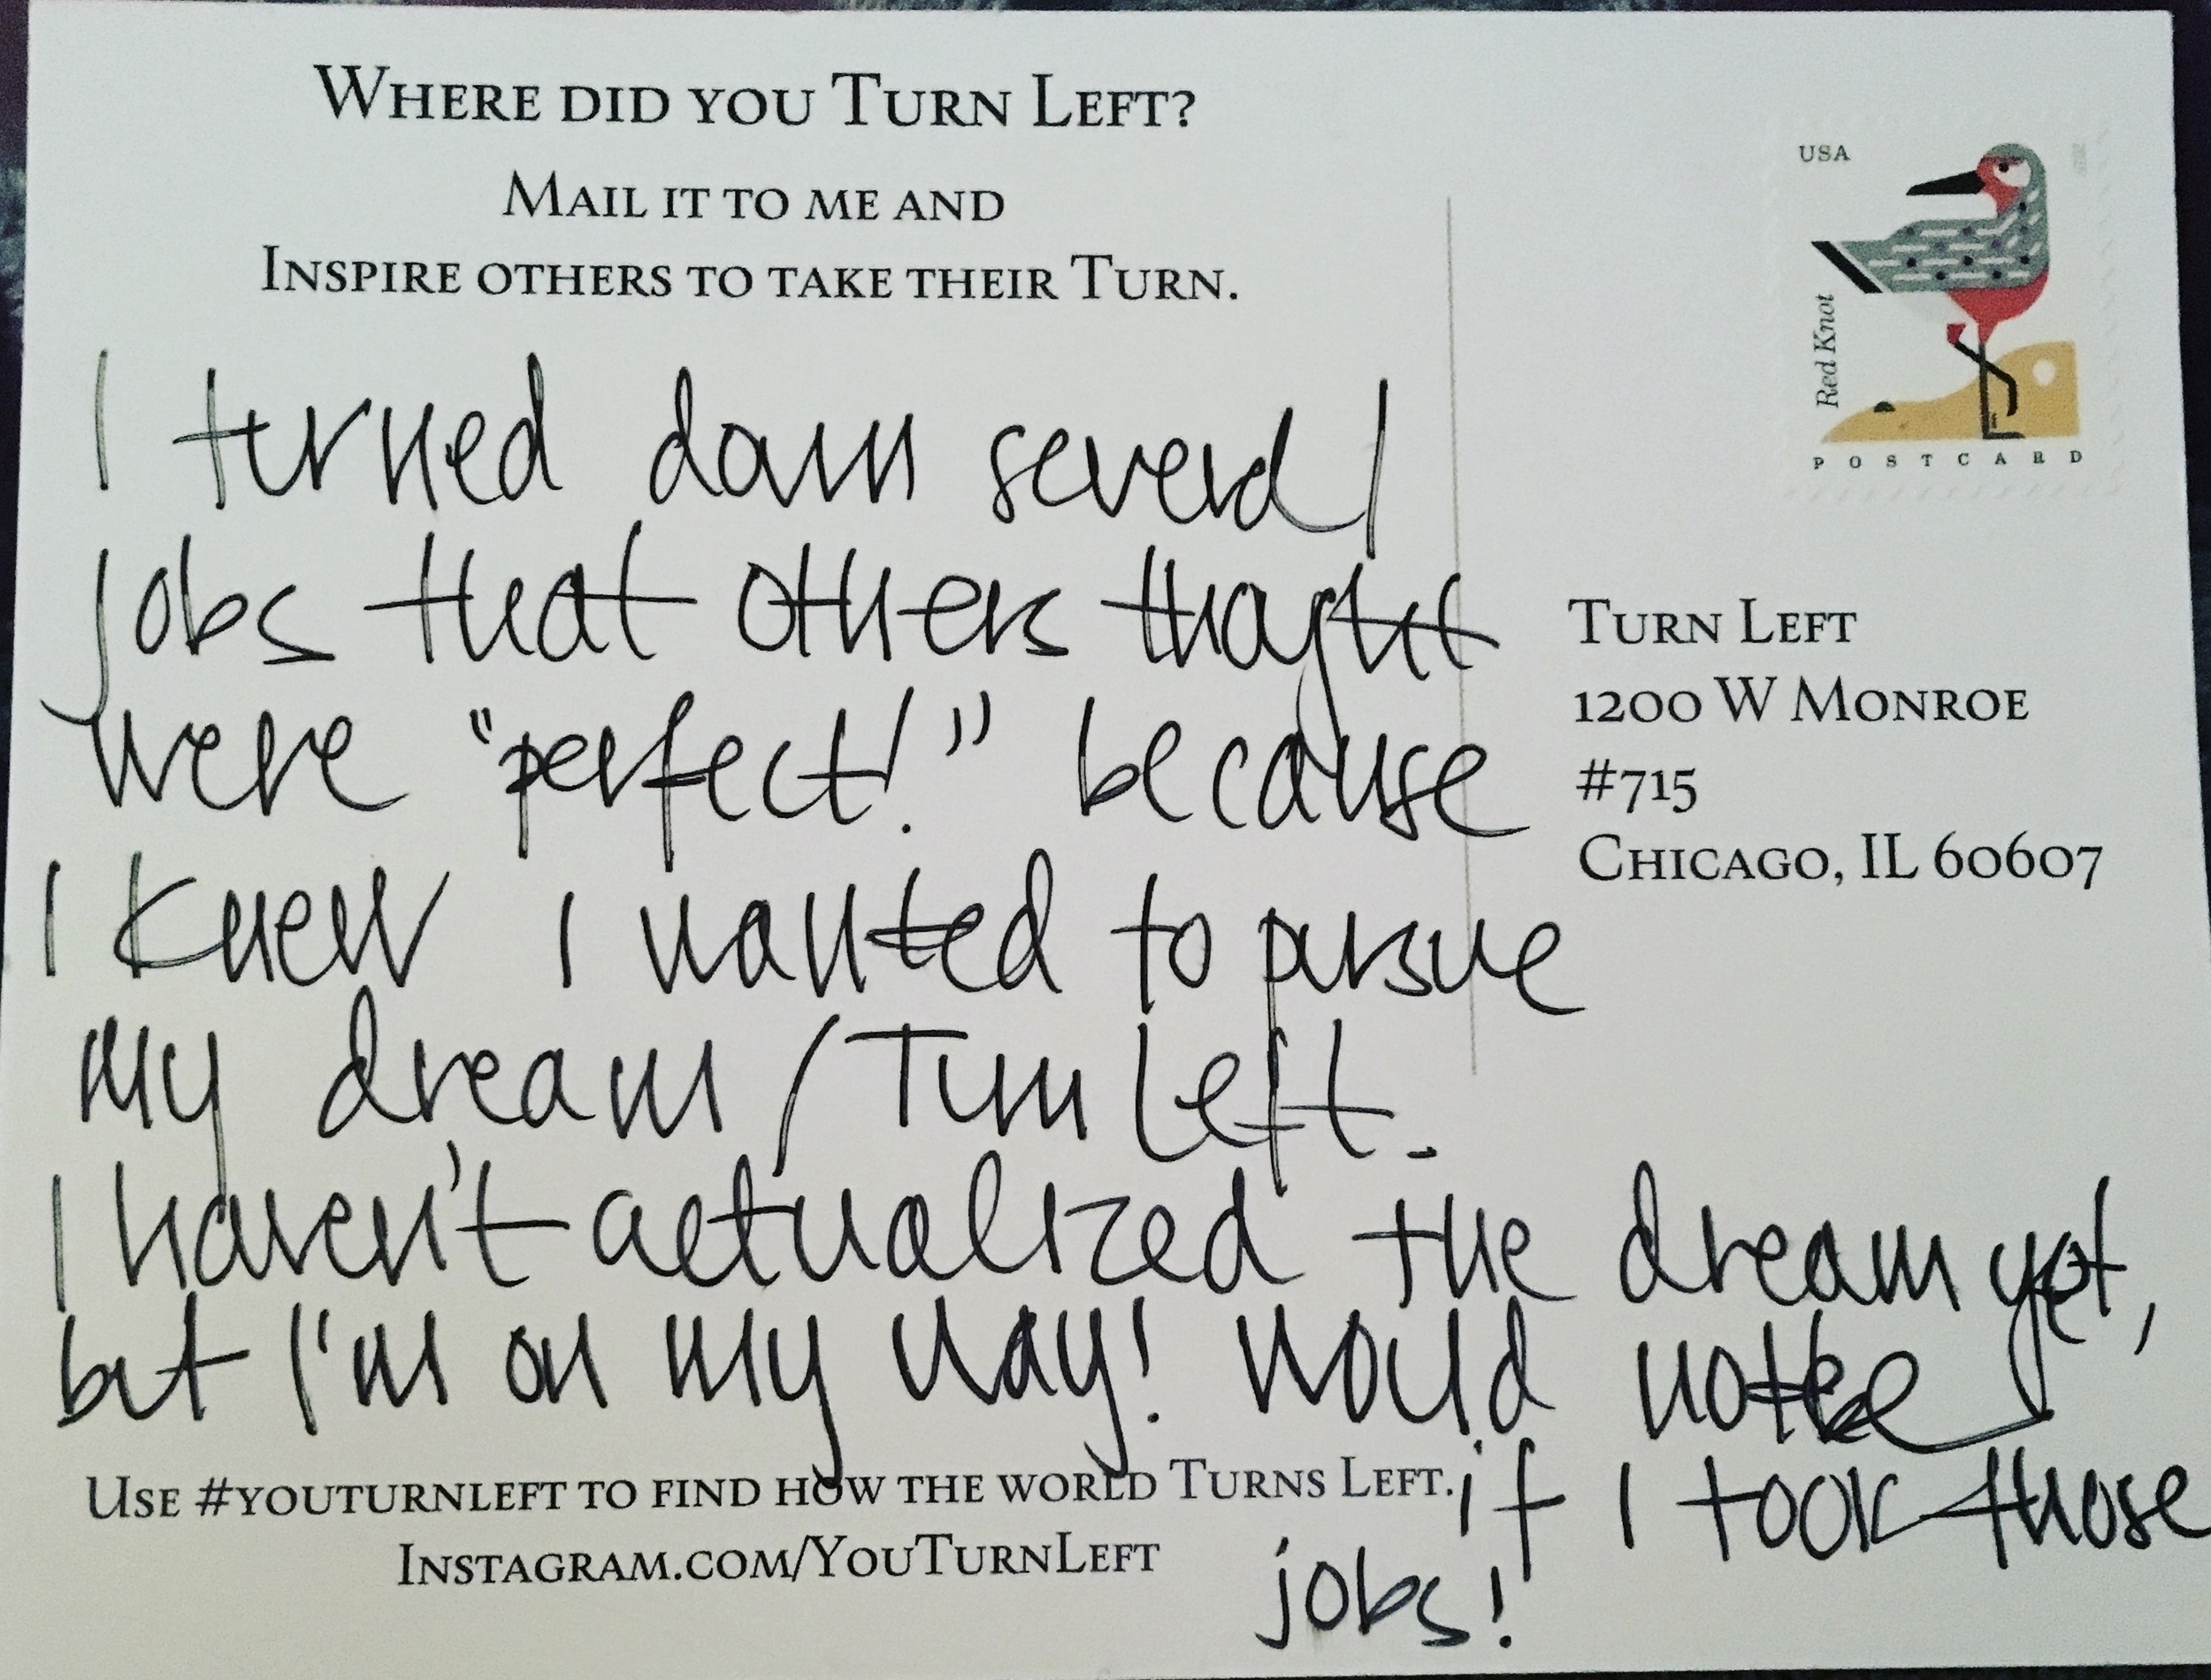 WHERE DID YOU TURN LEFT?
MAIL IT TO ME AND
INSPIRE OTHERS TO TAKE THEIR TURN.
I turned down several
jobs that others thought
were "perfect!" because
I knew I wanted to pursue
my dream / Turn Left.
I haven't actualized the dream yet,
but I'm on my way! Would not be
if I took those
jobs!
USE #YOUTURNLEFT TO FIND HOW THE WORLD TURNS LEFT.
INSTAGRAM.COM/YOUTURNLEFT
USA
Red Knot
POSTCARD
TURN LEFT
1200 W MONROE
#715
CHICAGO, IL 60607